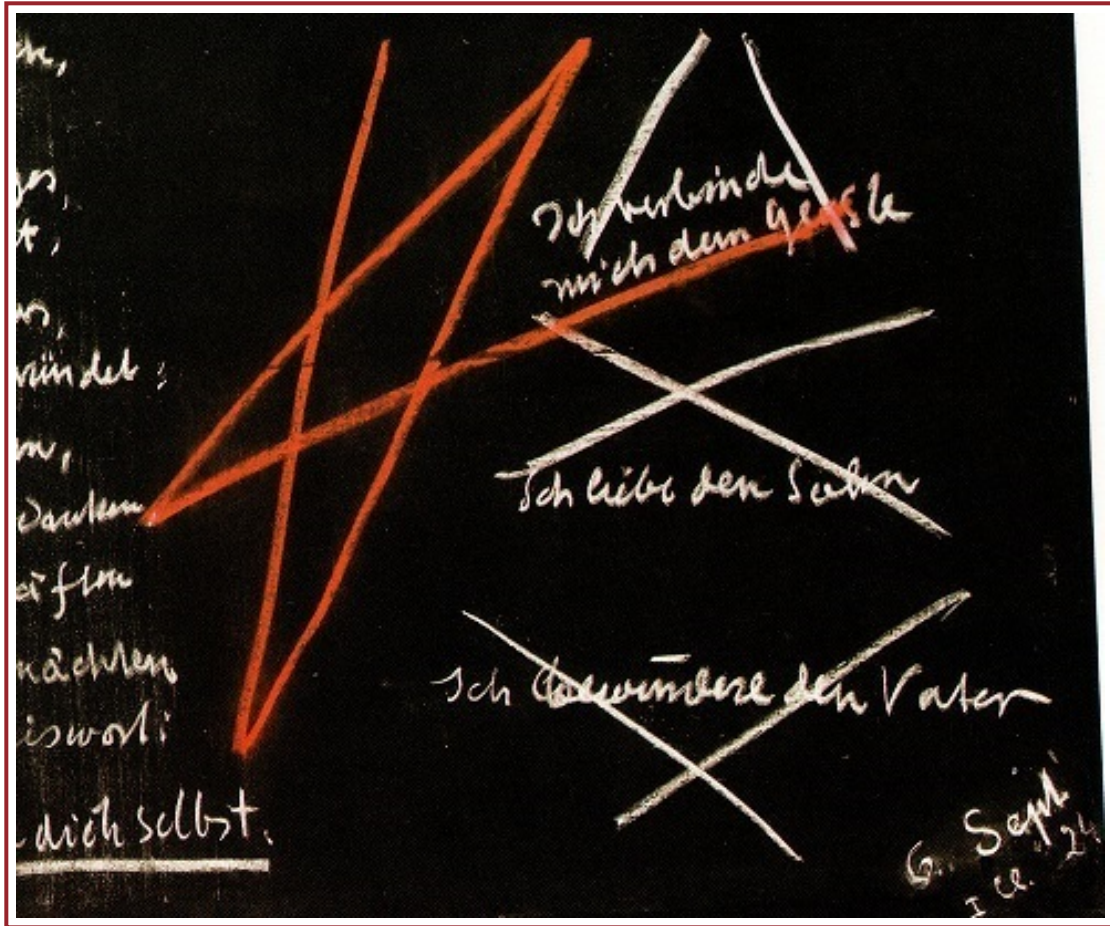 ündet:
danken
mächten
iswort:
dich selbst.
Ich verbinde
mich dem Geiste
Ich liebe den Sohn
Ich bewundere den Vater
6. Sept 24
I Cl.